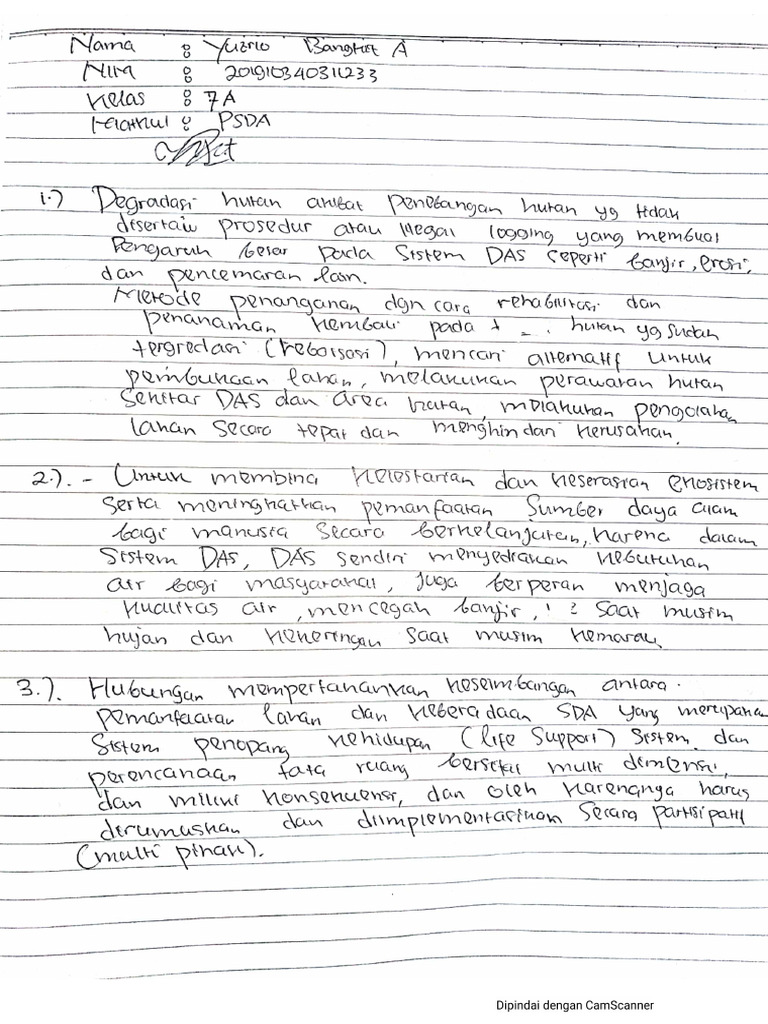 Nama : Yuzrio Bangkit A
Nim : 201910340311233
Kelas : 7A
Matkul : PSDA
1.) Degradasi hutan akibat penebangan hutan yg tidak
disertai prosedur atau illegal logging yang membuat
Pengaruh besar pada Sistem DAS seperti banjir, erosi,
dan pencemaran lain.
Metode penanganan dgn cara rehabilitasi dan
penanaman kembali pada hutan yg sudah
tergredasi (reboisasi), mencari alternatif untuk
pembukaan lahan, melakukan perawatan hutan
Sekitar DAS dan area hutan, melakukan pengolahan
lahan secara tepat dan menghindari kerusakan.
2.). - Untuk membina kelestarian dan keserasian ekosistem
serta meningkatkan pemanfaatan Sumber daya alam
bagi manusia secara berkelanjutan, karena dalam
Sistem DAS, DAS sendiri menyediakan kebutuhan
air bagi masyarakat, juga berperan menjaga
kualitas air, mencegah banjir, saat musim
hujan dan kekeringan saat musim kemarau.
3.). Hubungan mempertahankan keseimbangan antara
pemanfaatan lahan dan keberadaan SDA yang merupakan
Sistem penopang kehidupan (life support) Sistem dan
perencanaan tata ruang bersifat multi dimensi,
dan miliki konsekuensi, dan oleh karenanya harus
dirumuskan dan diimplementasikan secara partisipatif
(multi pihak).
Dipindai dengan CamScanner